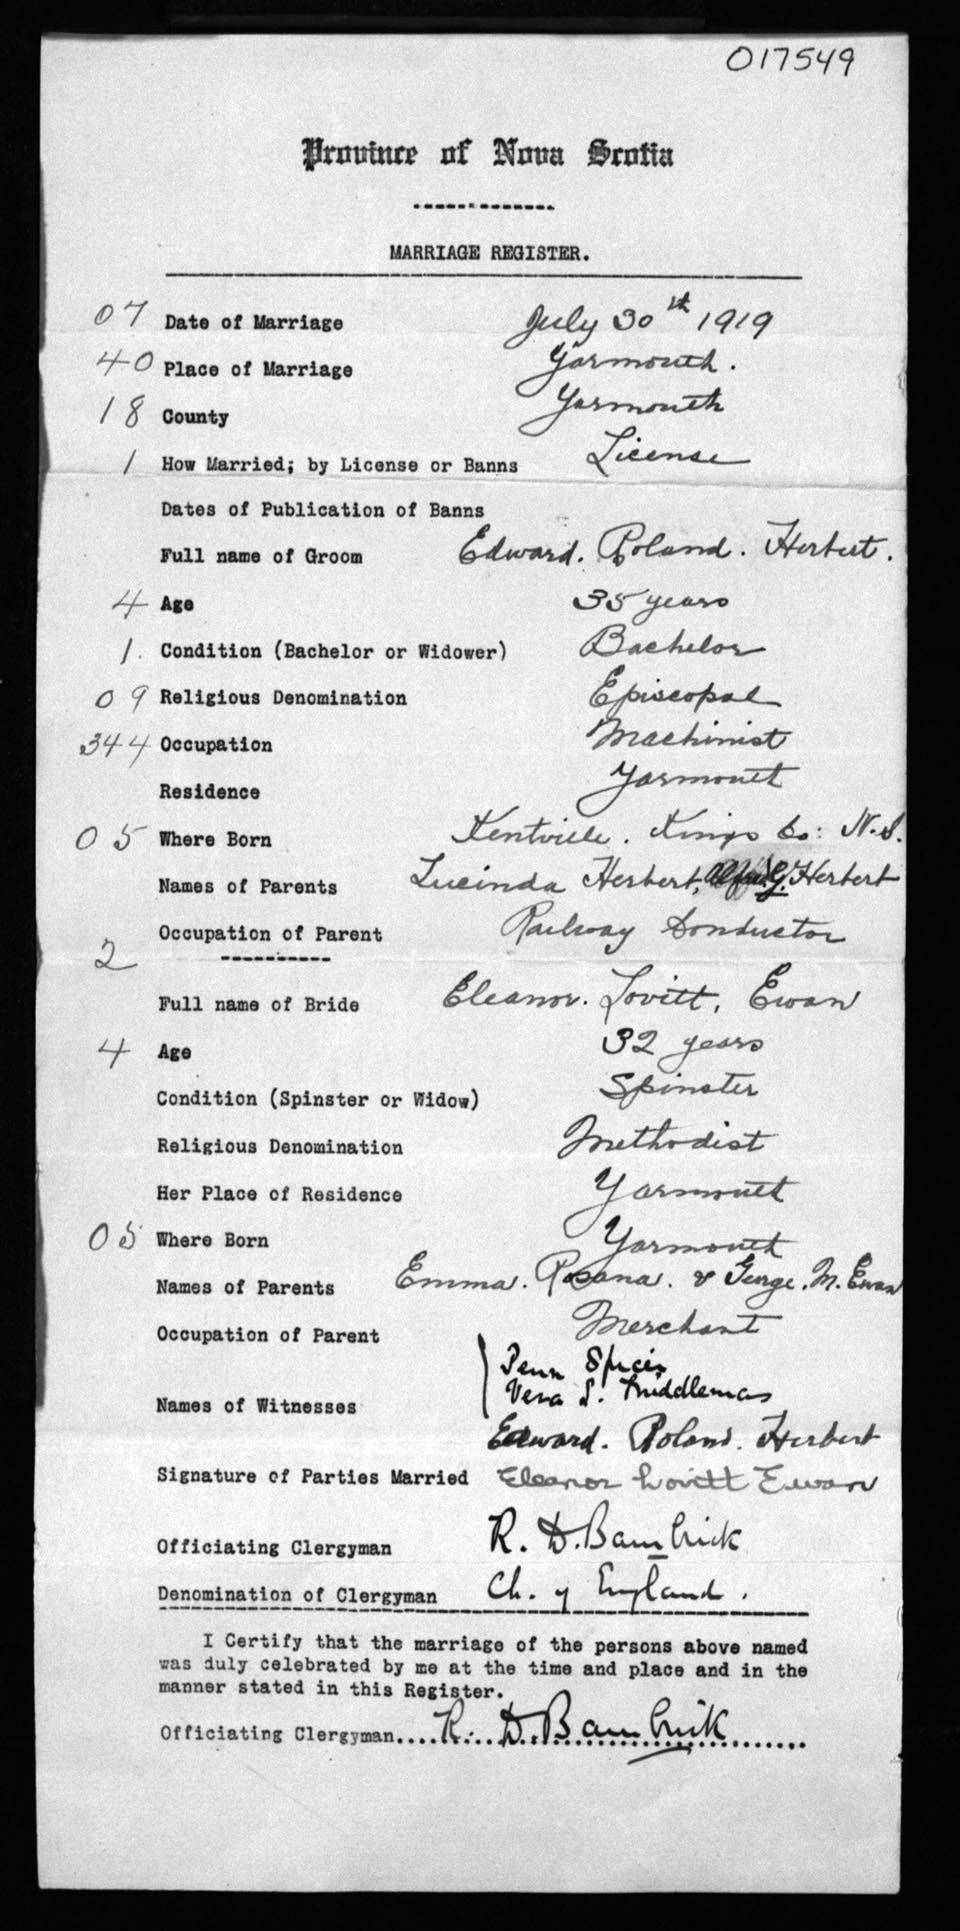 017549
Province of Nova Scotia
MARRIAGE REGISTER.
07 Date of Marriage July 30th 1919
40 Place of Marriage Yarmouth.
18 County Yarmouth
1 How Married; by License or Banns License
Dates of Publication of Banns
Full name of Groom Edward. Roland. Herbert.
4 Age 35 years
1. Condition (Bachelor or Widower) Bachelor
09 Religious Denomination Episcopal
344 Occupation Machinist
Residence Yarmouth
05 Where Born Kentville. Kings Co: N.S.
Names of Parents Lucinda Herbert, G. Herbert
Occupation of Parent Railway Conductor
2
Full name of Bride Eleanor. Lovitt, Ewan
4 Age 32 years
Condition (Spinster or Widow) Spinster
Religious Denomination Methodist
Her Place of Residence Yarmouth
05 Where Born Yarmouth
Names of Parents Emma. Rosana. & George. M. Ewan
Occupation of Parent Merchant
Penn
Names of Witnesses Vera S. Middlemas
Edward. Roland. Herbert
Signature of Parties Married Eleanor Lovitt Ewan
Officiating Clergyman R. D. Bambrick
Denomination of Clergyman Ch. of England.
I Certify that the marriage of the persons above named
was duly celebrated by me at the time and place and in the
manner stated in this Register.
Officiating Clergyman....R. D. Bambrick